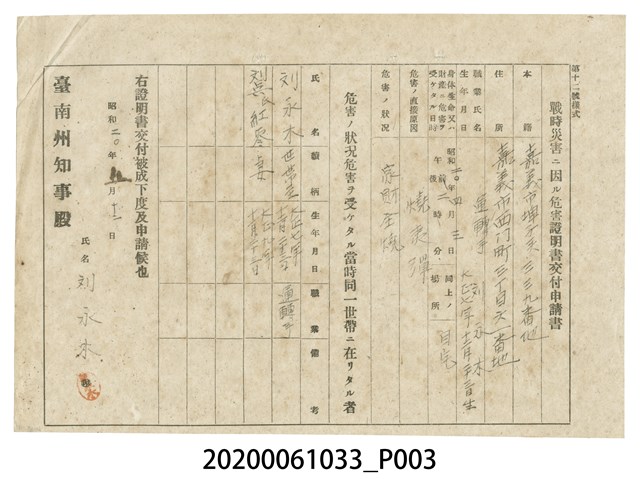 第十二號樣式
戰時災害ニ因ル危害證明書交付申請書
本籍 嘉義市埤子頭三三九番地
住所 嘉義市西門町三丁目六一番地
職業氏名 運轉手 刘永木
生年月日 大正七年十一月二十三日生
身体生命又ハ財產ニ危害ヲ受ケタル日時 昭和二〇年四月三日 午前後二時分 同上ノ場所 自宅
危害ノ直接原因 燒夷彈
危害ノ狀況 家財全燒
危害ノ狀況危害ヲ受ケタル當時同一世帶ニ在リタル者
氏名 續柄 生年月日 職業 備考
刘永木 世帶主 大正七年 運轉手
妻
右證明書交付被成下度及申請候也
昭和二〇年 月 日
氏名 刘永木
臺南州知事殿
20200061033_P003